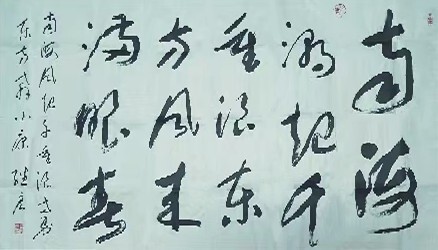 南海
潮起千
重浪东
方风来
满眼春
南海风起千重浪
东方小康